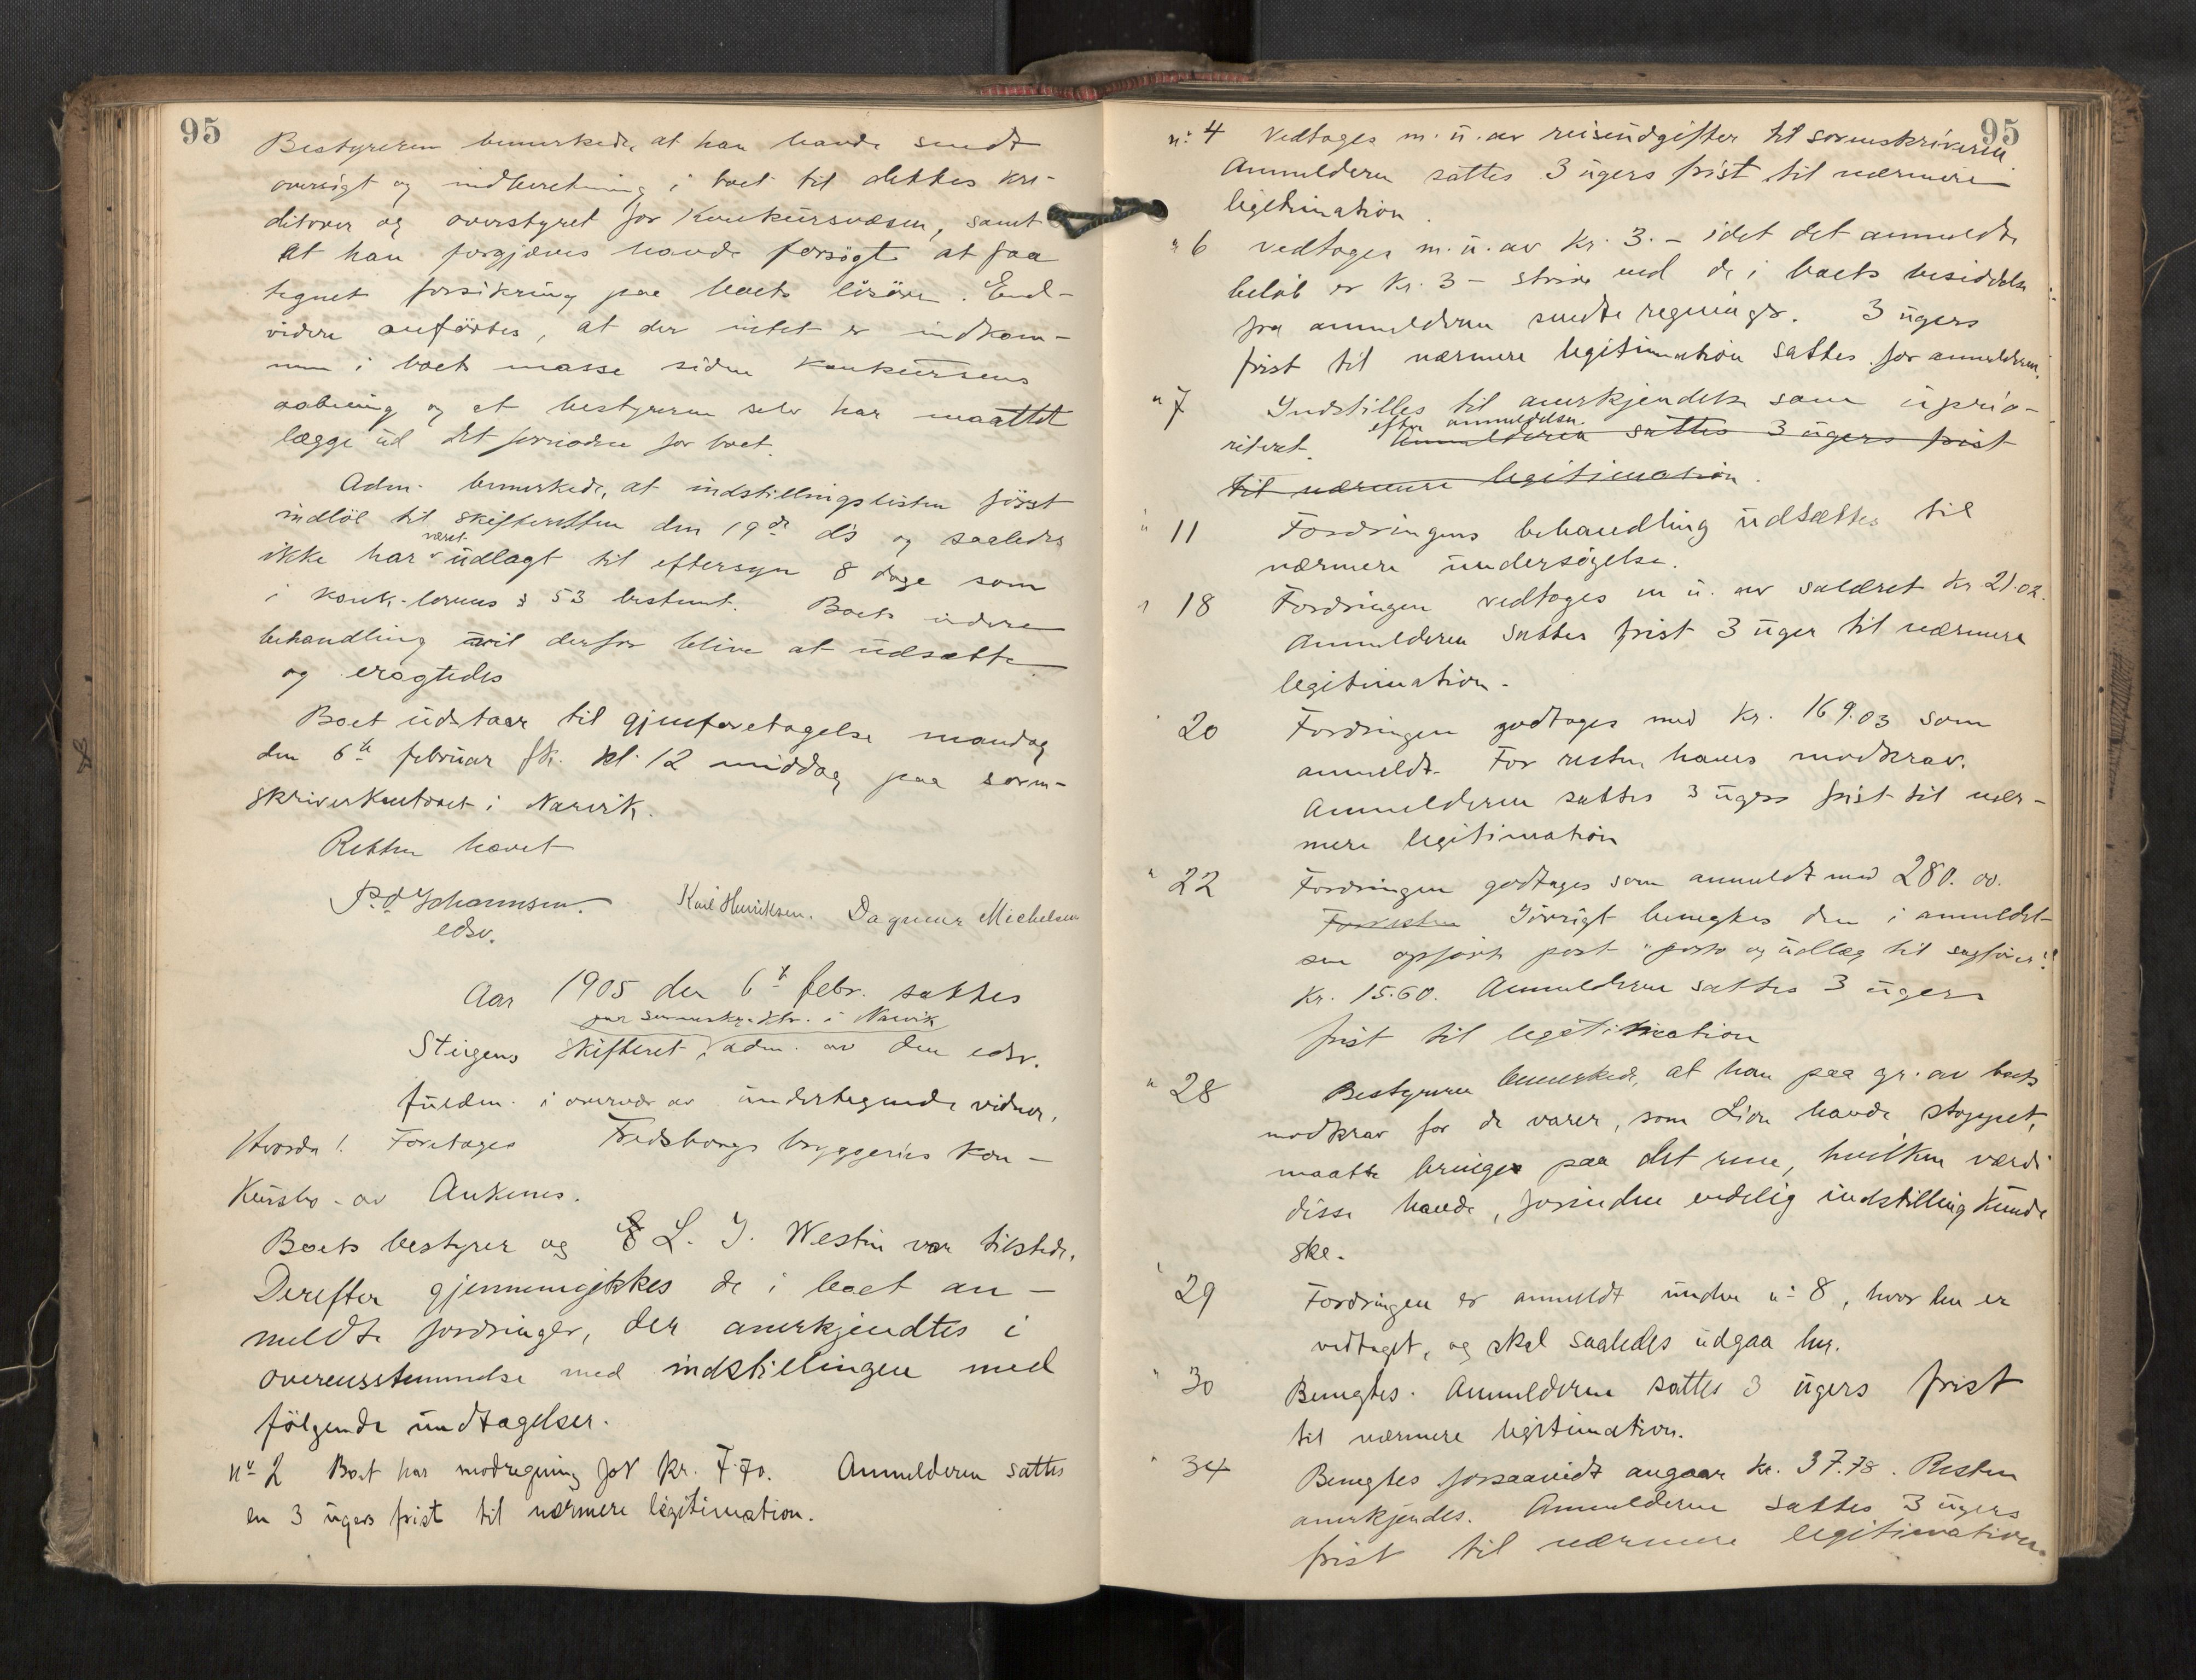 95
Bestyreren bemerkede, at han havde sendt
oversigt og indberetning i boet til dettes kre-
ditorer og overstyret for Konkursvæsen, samt
at han forgjæves havde forsögt at faa
tegnet forsikring paa boets lösöre. End-
videre anførtes, at der intet er indkom-
men i boets masse siden Konkursens
aabning og at bestyreren selv har maattet
lægge ud det fornödne for boet.
Adm. bemerkede, at indstillingslisten först
indlöb til skifteretten den 19de ds og saaledes
ikke har været udlagt til eftersyn 8 dage som
i konk-lovens § 53 bestemt. Boets videre
behandling vil derfor blive at udsætte
og eragtedes
Boet udstaar til gjenforetagelse mandag
den 6te februar fk. kl. 12 middag paa soren-
skriverkontoret i Narvik.
Retten hævet
P. d Johannsen. Karl Henriksen. Dagmar Michelsen
edsv.
Aar 1905 den 6te febr. sattes
paa sorenskr.ktr. i Narvik
Steigens skifteret, adm. av den edsv.
fuldm. i overvær av undertegnede vidner,
Hvorda 1. Foretages Fredsborgs bryggeries kon-
kursbo av Ankenes.
Boets bestyrer og L. J. Westin var tilstede.
Derefter gjennemgikkes de i boet an-
meldte fordringer, der anerkjendtes i
overensstemmelse med indstillingen med
fölgende undtagelser.
No 2 Boet har modregning for kr. 7.70. Anmelderen sattes
en 3 ugers frist til nærmere legitimation.
95
no 4 Vedtages m. u. av reiseudgifter til sorenskriveren
Anmelderen sattes 3 ugers frist til nærmere
legitimation.
" 6 vedtages m. u. av kr. 3.- idet det anmeldte
belöb er kr. 3- större end de i boets besiddelse
fra anmelderen sendte regninger. 3 ugers
frist til nærmere legitimation sattes for anmelderen.
" 7 Indstilles til anerkjendelse som uprio-
riteret efter anmeldelsen. Anmelderen sattes 3 ugers frist
til nærmere legitimation.
" 11 Fordringens behandling udsættes til
nærmere undersögelse.
" 18 Fordringen vedtages m u. av salæret kr 21.02.
Anmelderen sattes frist 3 uger til nærmere
legitimation.
" 20 Fordringen godtages med kr. 169.03 som
anmeldt. For resten haves modkrav.
Anmelderen sattes 3 ugers frist til nær-
mere legitimation
" 22 Fordringen godtages som anmeldt med 280.00.
For resten Iövrigt benegtes den i anmeldel-
sen opförte post "porto og udlæg til sagförer"
kr. 15.60. Anmelderen sattes 3 ugers
frist til legitimation
" 28 Bestyreren bemerkede, at han paa gr. av boets
modkrav for de varer, som Lion havde stoppet,
maatte bringes paa det rene, hvilken værdi
disse havde, forinden endelig indstilling kunde
ske.
" 29 Fordringen er anmeldt under no 8, hvor den er
vedtaget, og skal saaledes udgaa her.
" 30 Benegtes. Anmelderen sattes 3 ugers frist
til nærmere legitimation.
" 34 Benegtes forsaavidt angaar kr. 37.78. Resten
anerkjendes. Anmelderen sattes 3 ugers
frist til nærmere legitimation.